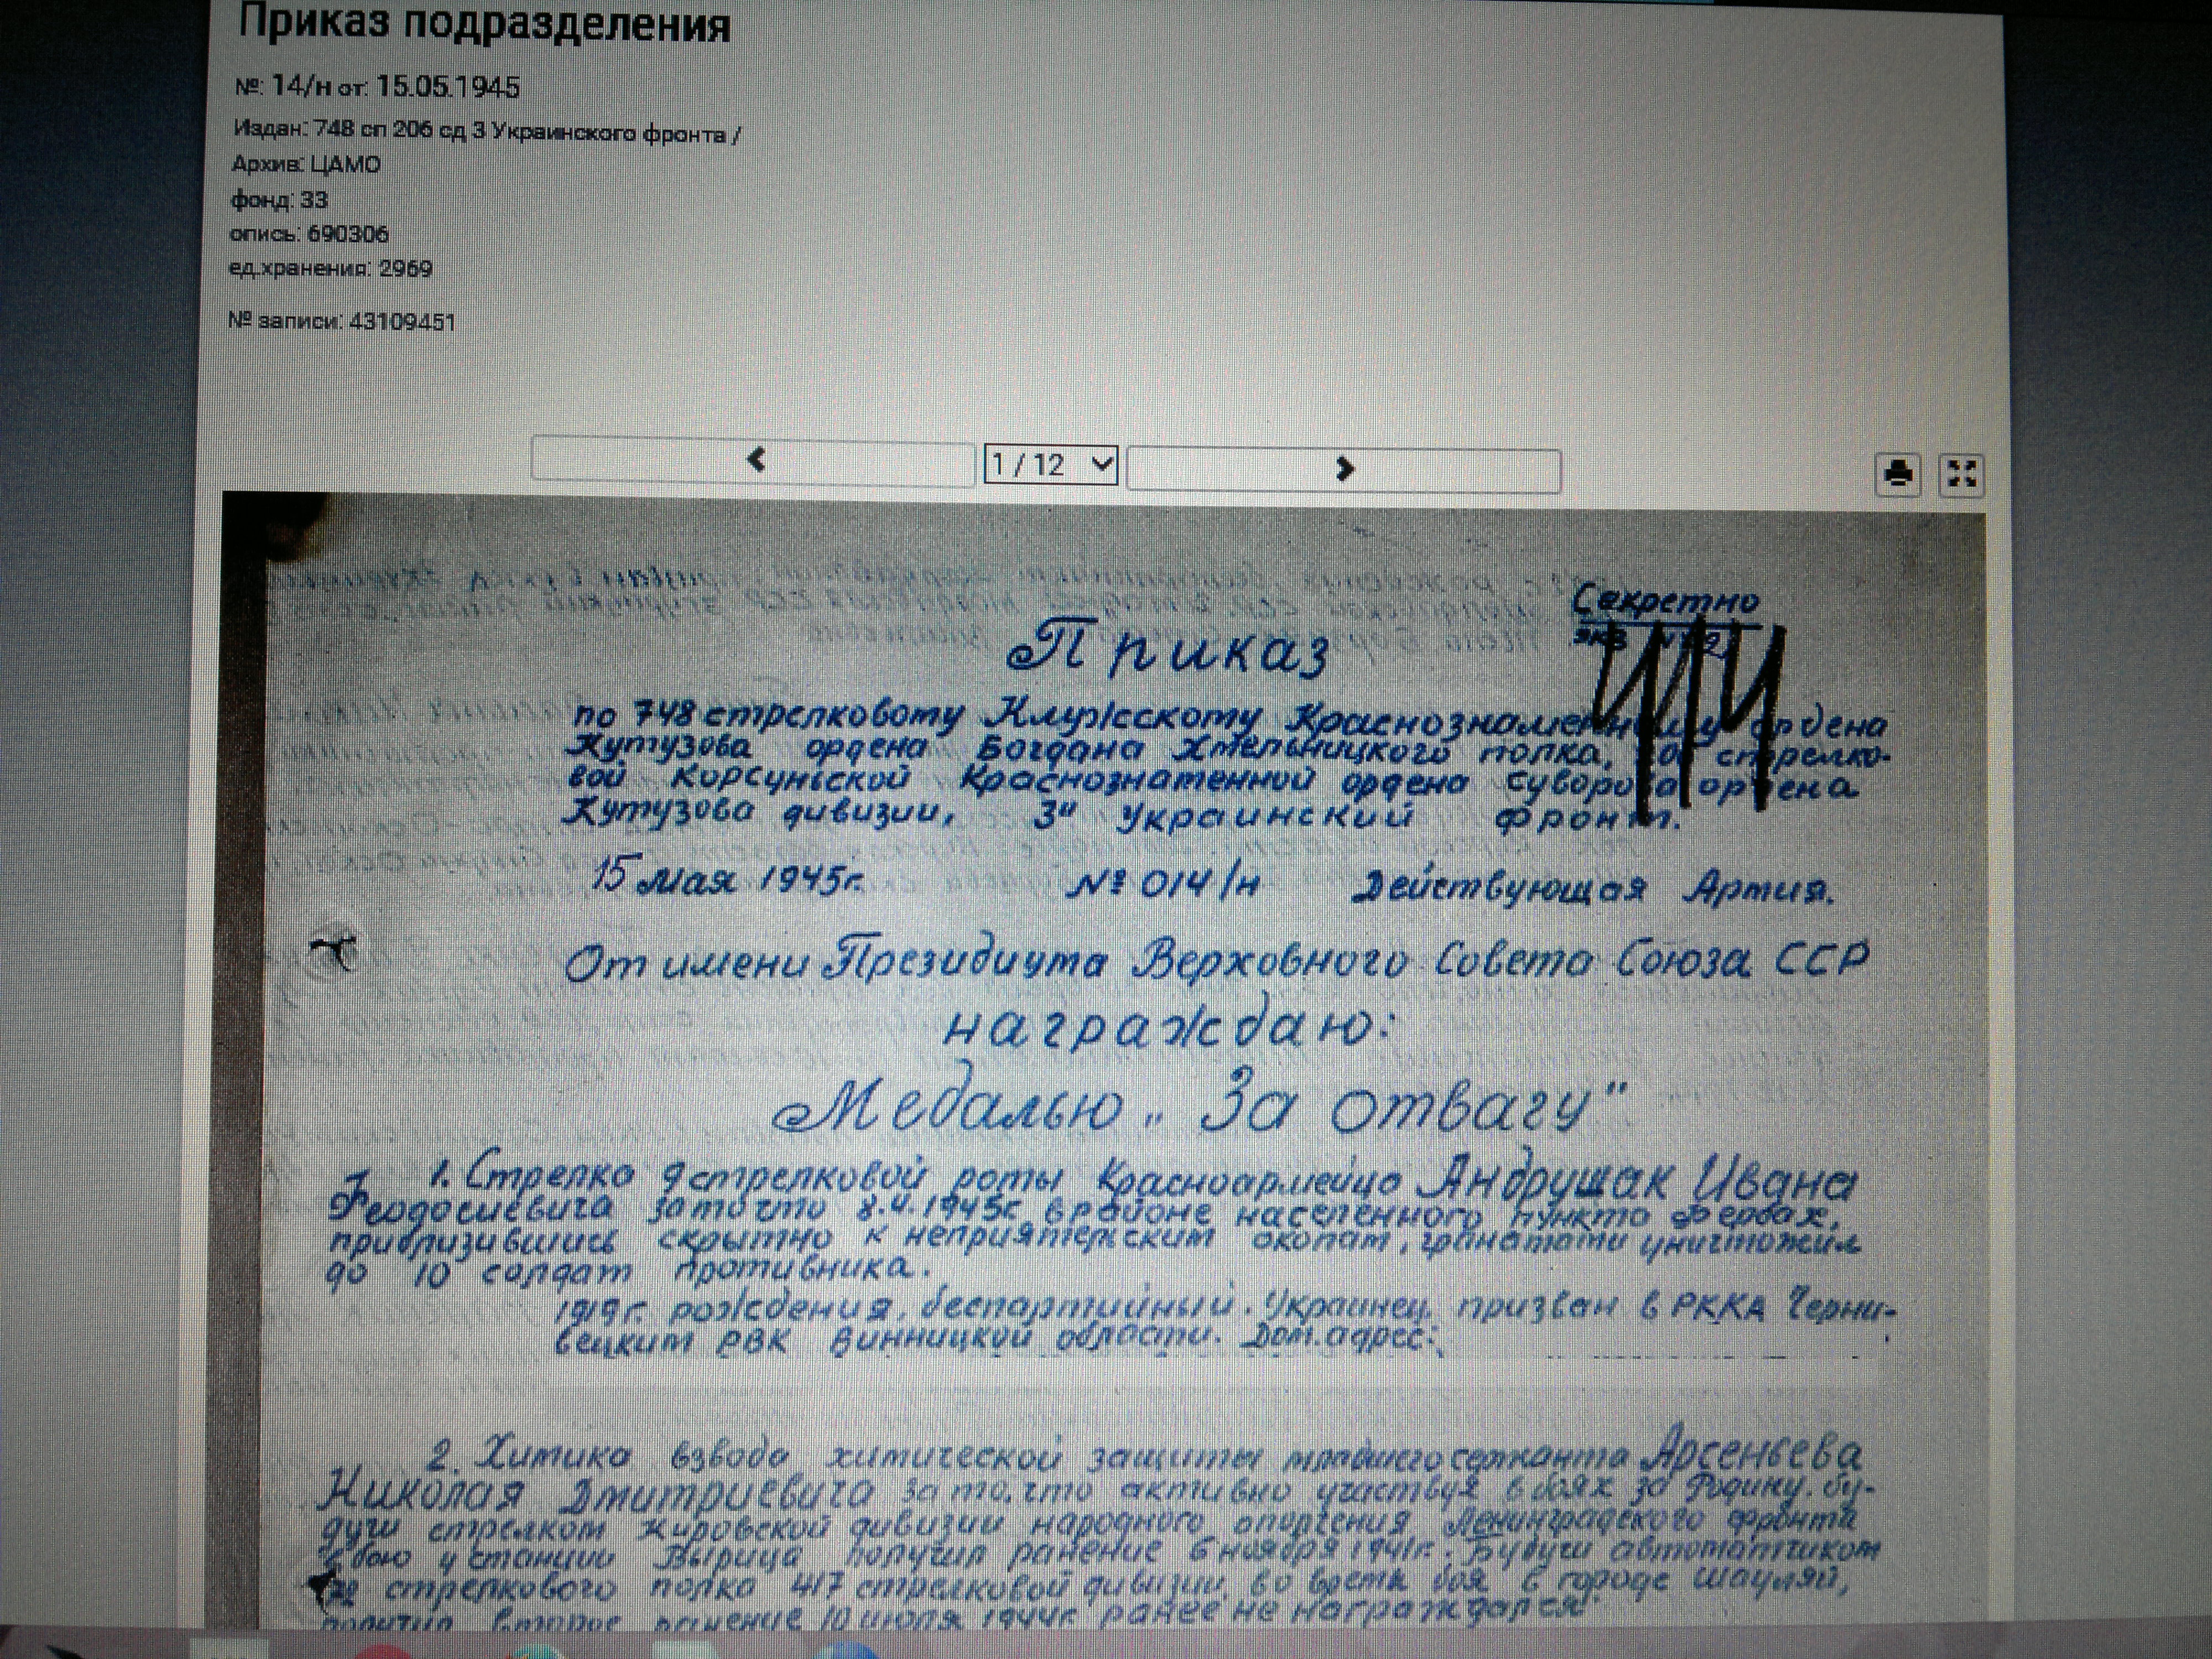 Приказ подразделения
№: 14/н от: 15.05.1945
Издан: 748 сп 206 сд 3 Украинского фронта /
Архив: ЦАМО
фонд: 33
опись: 690306
ед.хранения: 2969
№ записи: 43109451
1 / 12
Секретно
Приказ
по 748 стрелковому Клужскому Краснознаменному ордена
Кутузова ордена Богдана Хмельницкого полка, стрелко-
вой Корсуньской Краснознаменной ордена Суворова ордена
Кутузова дивизии, 3й Украинский фронт.
15 мая 1945г. № 014/н Действующая Армия.
От имени Президиума Верховного Совета Союза ССР
награждаю:
Медалью „За отвагу"
1. Стрелка 9 стрелковой роты Красноармейца Андрущак Ивана
Феодосиевича за то что 8.4.1945г. в районе населенного пункта Фербах,
приблизившись скрытно к неприятельским окопам, гранатами уничтожил
до 10 солдат противника.
1919г. рождения, беспартийный. Украинец, призван в РККА Черни-
вецким РВК Винницкой области. Дом. адрес:
2. Химика взвода химической защиты младшего сержанта Арсеньева
Николая Дмитриевича за то, что активно участвуя в боях за Родину, бу-
дучи стрелком Кировской дивизии народного ополчения Ленинградского фронта
в бою у станции Вырица получил ранение 6 ноября 1941г. Будучи автоматчиком
стрелкового полка 417 стрелковой дивизии, во время боя в городе Шауляй,
получил второе ранение 10 июля 1944г. ранее не награждался.